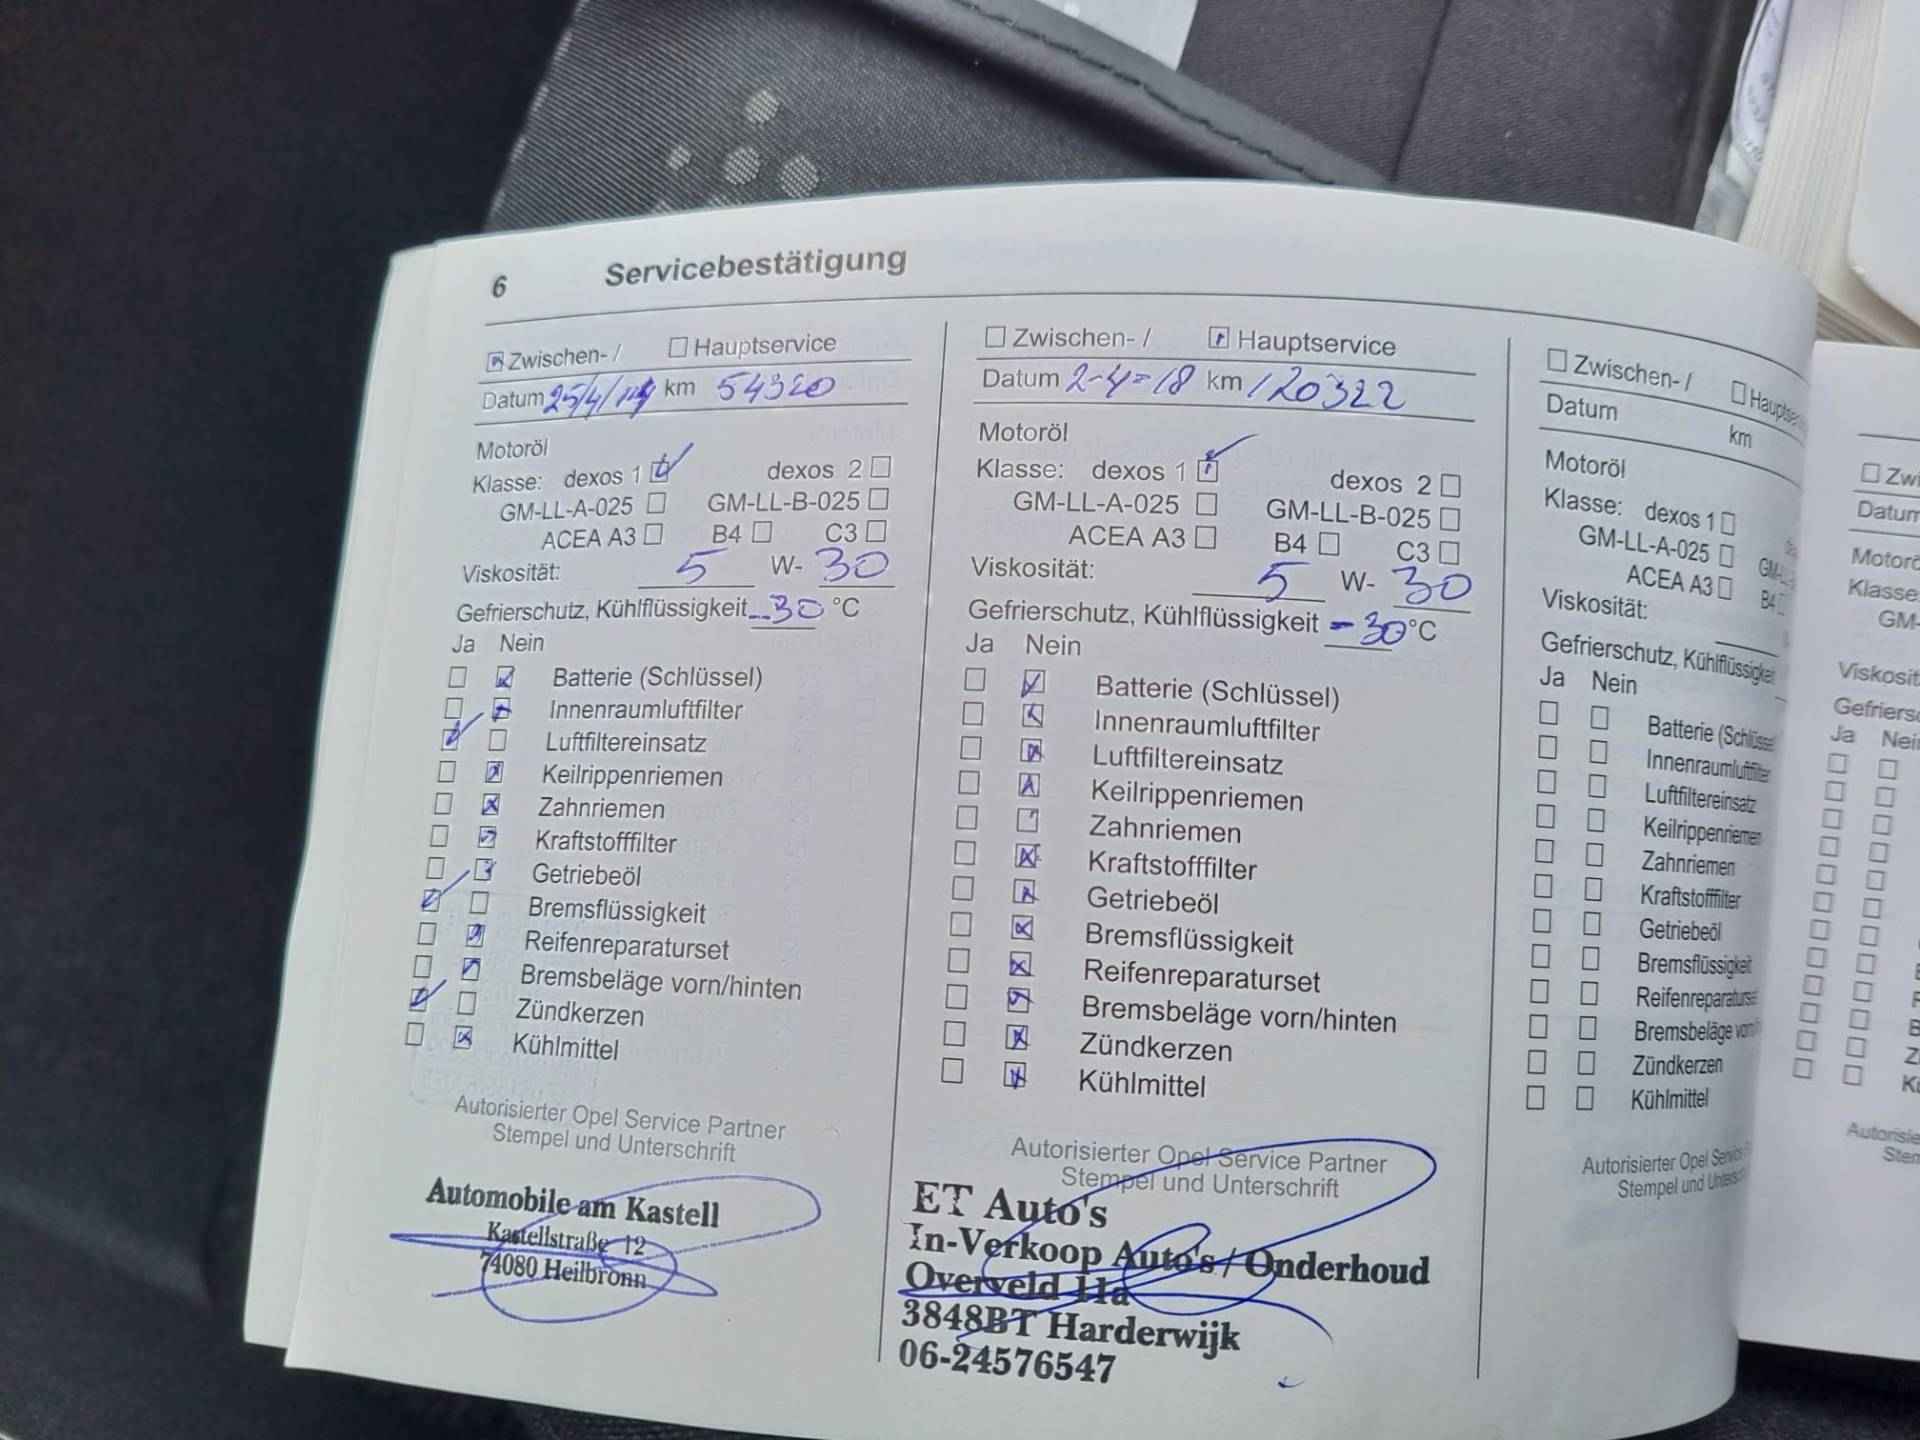 6 Servicebestätigung
Zwischen- / Hauptservice
Datum 25/4/14 km 54320
Motoröl
Klasse: dexos 1 dexos 2
GM-LL-A-025 GM-LL-B-025
ACEA A3 B4 C3
Viskosität: 5 W- 30
Gefrierschutz, Kühlflüssigkeit -30 °C
Ja Nein
Batterie (Schlüssel)
Innenraumluftfilter
Luftfiltereinsatz
Keilrippenriemen
Zahnriemen
Kraftstofffilter
Getriebeöl
Bremsflüssigkeit
Reifenreparaturset
Bremsbeläge vorn/hinten
Zündkerzen
Kühlmittel
Autorisierter Opel Service Partner
Stempel und Unterschrift
Automobile am Kastell
Kastellstraße 12
74080 Heilbronn
Zwischen- / Hauptservice
Datum 2-4-18 km 120322
Motoröl
Klasse: dexos 1 dexos 2
GM-LL-A-025 GM-LL-B-025
ACEA A3 B4 C3
Viskosität: 5 W- 30
Gefrierschutz, Kühlflüssigkeit -30 °C
Ja Nein
Batterie (Schlüssel)
Innenraumluftfilter
Luftfiltereinsatz
Keilrippenriemen
Zahnriemen
Kraftstofffilter
Getriebeöl
Bremsflüssigkeit
Reifenreparaturset
Bremsbeläge vorn/hinten
Zündkerzen
Kühlmittel
Autorisierter Opel Service Partner
Stempel und Unterschrift
ET Auto's
In-Verkoop Auto's / Onderhoud
Overveld 11a
3848BT Harderwijk
06-24576547
Zwischen- /
Datum km
Motoröl
Klasse: dexos 1
GM-LL-A-025
ACEA A3 B4
Viskosität:
Gefrierschutz, Kühlflüssigkeit
Ja Nein
Batterie (Schlüssel
Innenraumluftfilter
Luftfiltereinsatz
Keilrippenriemen
Zahnriemen
Kraftstofffilter
Getriebeöl
Bremsflüssigkeit
Reifenreparaturset
Bremsbeläge
Zündkerzen
Kühlmittel
Autorisierter Opel
Stempel und
Datum
Klasse
Ja